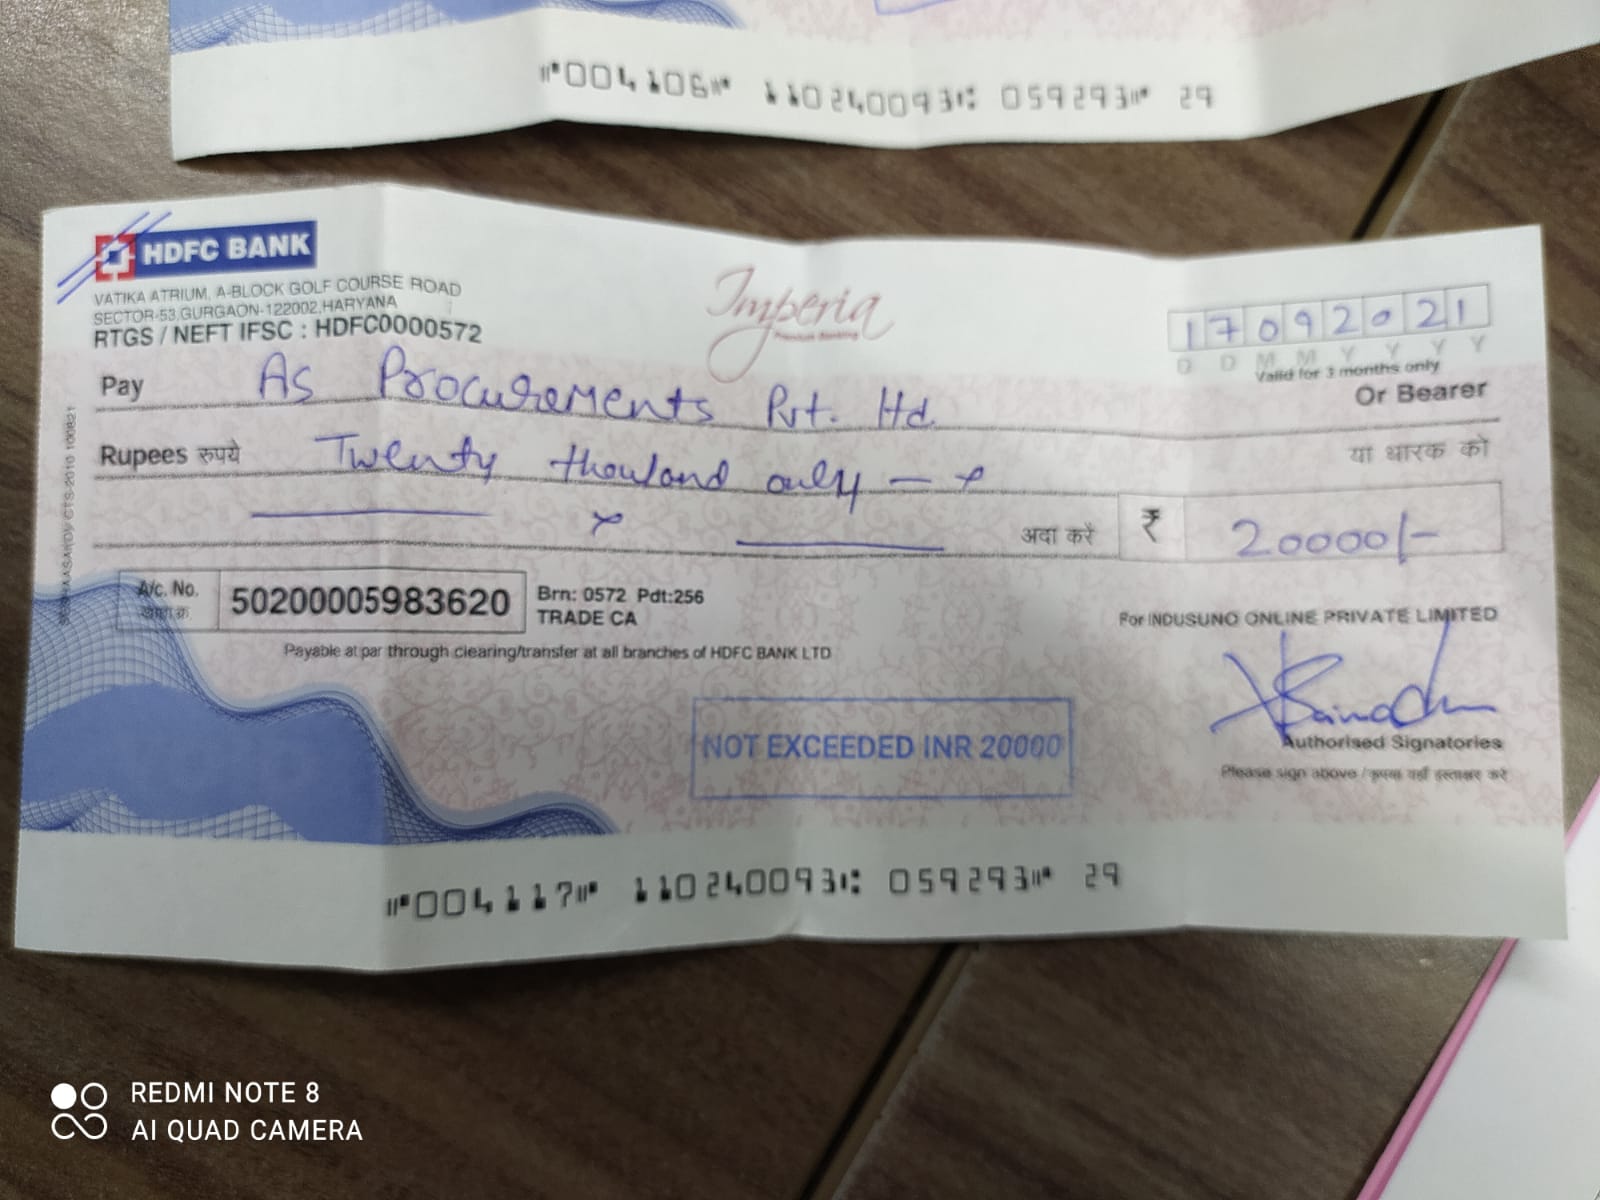 "004106" 110240093: 059293" 29
HDFC BANK
VATIKA ATRIUM, A-BLOCK GOLF COURSE ROAD
SECTOR-53,GURGAON-122002,HARYANA
RTGS / NEFT IFSC : HDFC0000572
Imperia
Premium Banking
17092021
D D M M Y Y Y Y
Valid for 3 months only
Pay As Procurements Pvt. Ltd.
Or Bearer
या धारक को
Rupees रुपये Twenty thousand only
अदा करें ₹ 20000/-
A/c. No. 50200005983620
Brn: 0572 Pdt:256
TRADE CA
For INDUSUNO ONLINE PRIVATE LIMITED
Payable at par through clearing/transfer at all branches of HDFC BANK LTD
NOT EXCEEDED INR 20000
Authorised Signatories
Please sign above / कृपया यहाँ हस्ताक्षर करे
"004117" 110240093: 059293" 29
REDMI NOTE 8
AI QUAD CAMERA